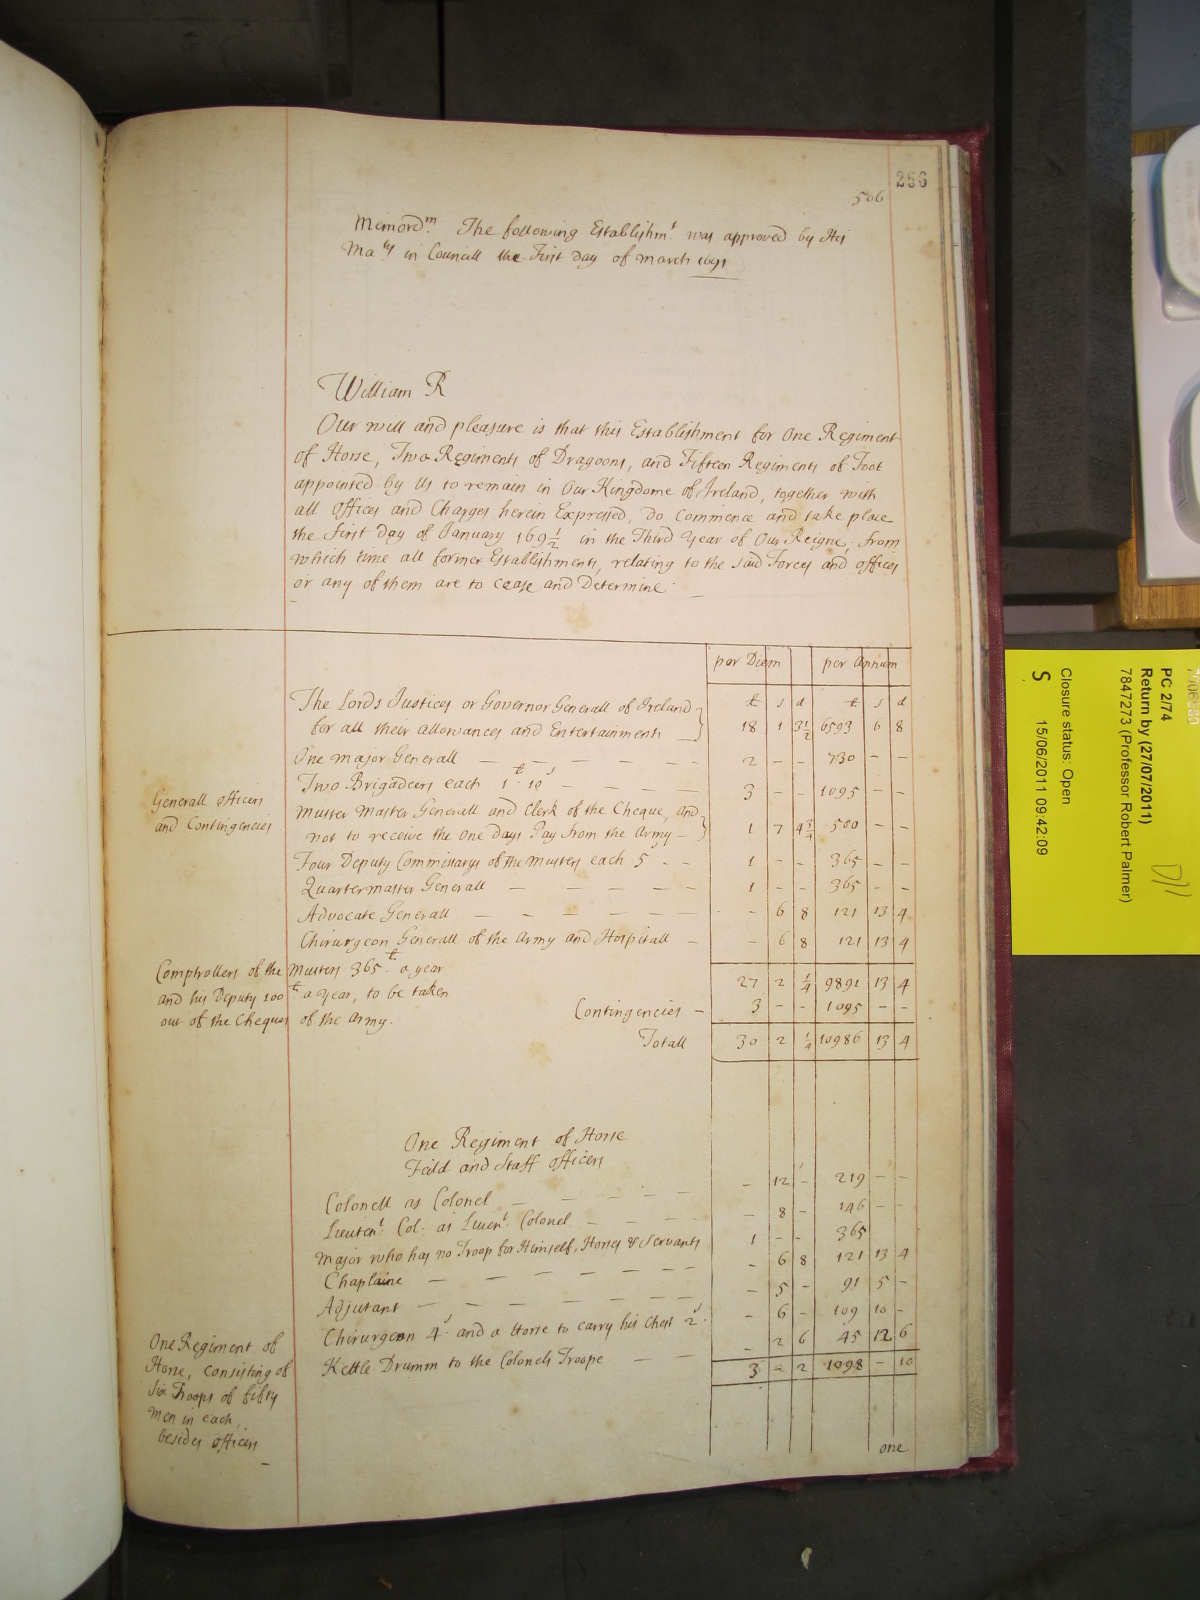 286
506
Memord.m The following Establishm.t was approved by His
Ma.tij in Councill the First day of March 1691
William R
Our will and pleasure is that this Establishment for One Regiment
of Horse, Two Regiments of Dragoons, and Fifteen Regiments of Foot
appointed by Us to remain in Our Kingdome of Ireland, together with
all Offices and Charges herein Expressed, do Commence and take place
the First day of January 169½ in the Third Year of Our Reigne, from
which time all former Establishments, relating to the said Forces and offices
or any of them are to cease and Determine.
per Diem per Annum
£ s d £ s d
The Lords Justices or Governor Generall of Ireland
for all their allowances and Entertainments 18 1 3½ 6593 6 8
One Major Generall — — — — — — 2 - - 730 - -
Two Brigadeers each 1£ 10s — — — 3 - - 1095 - -
Generall officers
and Contingencies
Muster Master Generall and Clerk of the Cheque, and
not to receive the one days Pay from the Army 1 7 4¾ 500 - -
Four Deputy Commissarys of the Musters each 5 - - 1 - - 365 - -
Quartermaster Generall — — — — 1 - - 365 - -
Advocate Generall — — — — — - 6 8 121 13 4
Chirurgeon Generall of the Army and Hospitall - - 6 8 121 13 4
Comptrollers of the Musters 365£ a year
and his Deputy 100£ a year, to be taken
out of the Cheques of the Army.
27 2 ¼ 9891 13 4
Contingencies - 3 - - 1095 - -
Totall 30 2 ¼ 10986 13 4
One Regiment of Horse
Feild and Staff officers
Colonell as Colonel — — — — - 12 - 219 - -
Lieuten.t Col. as Lieuen.t Colonel — — — - 8 - 146 - -
Major who has no Troop for Himself, Horses & Servants 1 - - 365
Chaplaine — — — — — — - 6 8 121 13 4
Adjutant — — — — — — - 5 - 91 5 -
Chirurgeon 4s and a Horse to carry his Chest 2s. - 6 - 109 10 -
Kettle Drumm to the Colonels Troope — — - 2 6 45 12 6
3 - 2 1098 - 10
One Regiment of
Horse, consisting of
Six Troops of fifty
men in each,
besides officers
one
PC 2/74
Return by (27/07/2011)
7847273 (Professor Robert Palmer)
Closure status: Open
S 15/06/2011 09:42:09